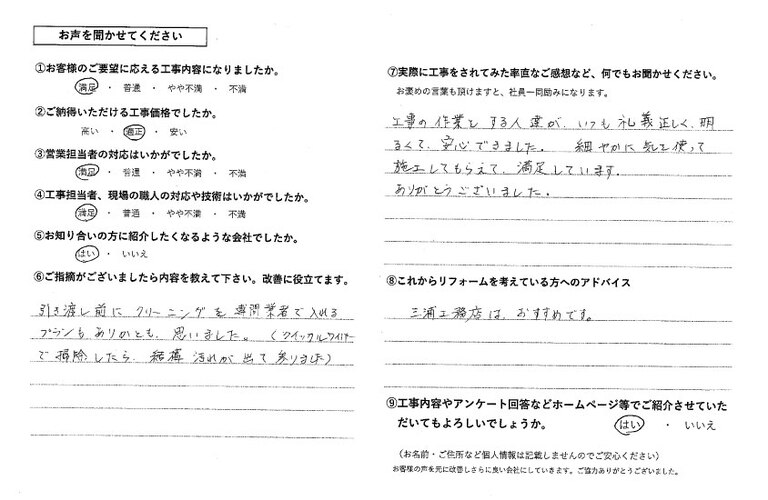 お声を聞かせてください
①お客様のご要望に応える工事内容になりましたか。
満足 ・ 普通 ・ やや不満 ・ 不満
②ご納得いただける工事価格でしたか。
高い ・ 適正 ・ 安い
③営業担当者の対応はいかがでしたか。
満足 ・ 普通 ・ やや不満 ・ 不満
④工事担当者、現場の職人の対応や技術はいかがでしたか。
満足 ・ 普通 ・ やや不満 ・ 不満
⑤お知り合いの方に紹介したくなるような会社でしたか。
はい ・ いいえ
⑥ご指摘がございましたら内容を教えて下さい。改善に役立てます。
引き渡し前に クリーニングを 専門業者で入れる
プランもありかとも、思いました。（クイックルワイパー
で掃除したら、結構 汚れが出て参りました）
⑦実際に工事をされてみた率直なご感想など、何でもお聞かせください。
お褒めの言葉も頂けますと、社員一同励みになります。
工事の作業をする人達が、いつも礼義正しく、明
るくて、安心できました。 細やかに気を使って
施工してもらえて、満足しています。
ありがとうございました。
⑧これからリフォームを考えている方へのアドバイス
三浦工務店は、おすすめです。
⑨工事内容やアンケート回答などホームページ等でご紹介させていた
だいてもよろしいでしょうか。 はい ・ いいえ
（お名前・ご住所など個人情報は記載しませんのでご安心ください）
お客様の声を元に改善しさらに良い会社にしていきます。ご協力ありがとうございました。